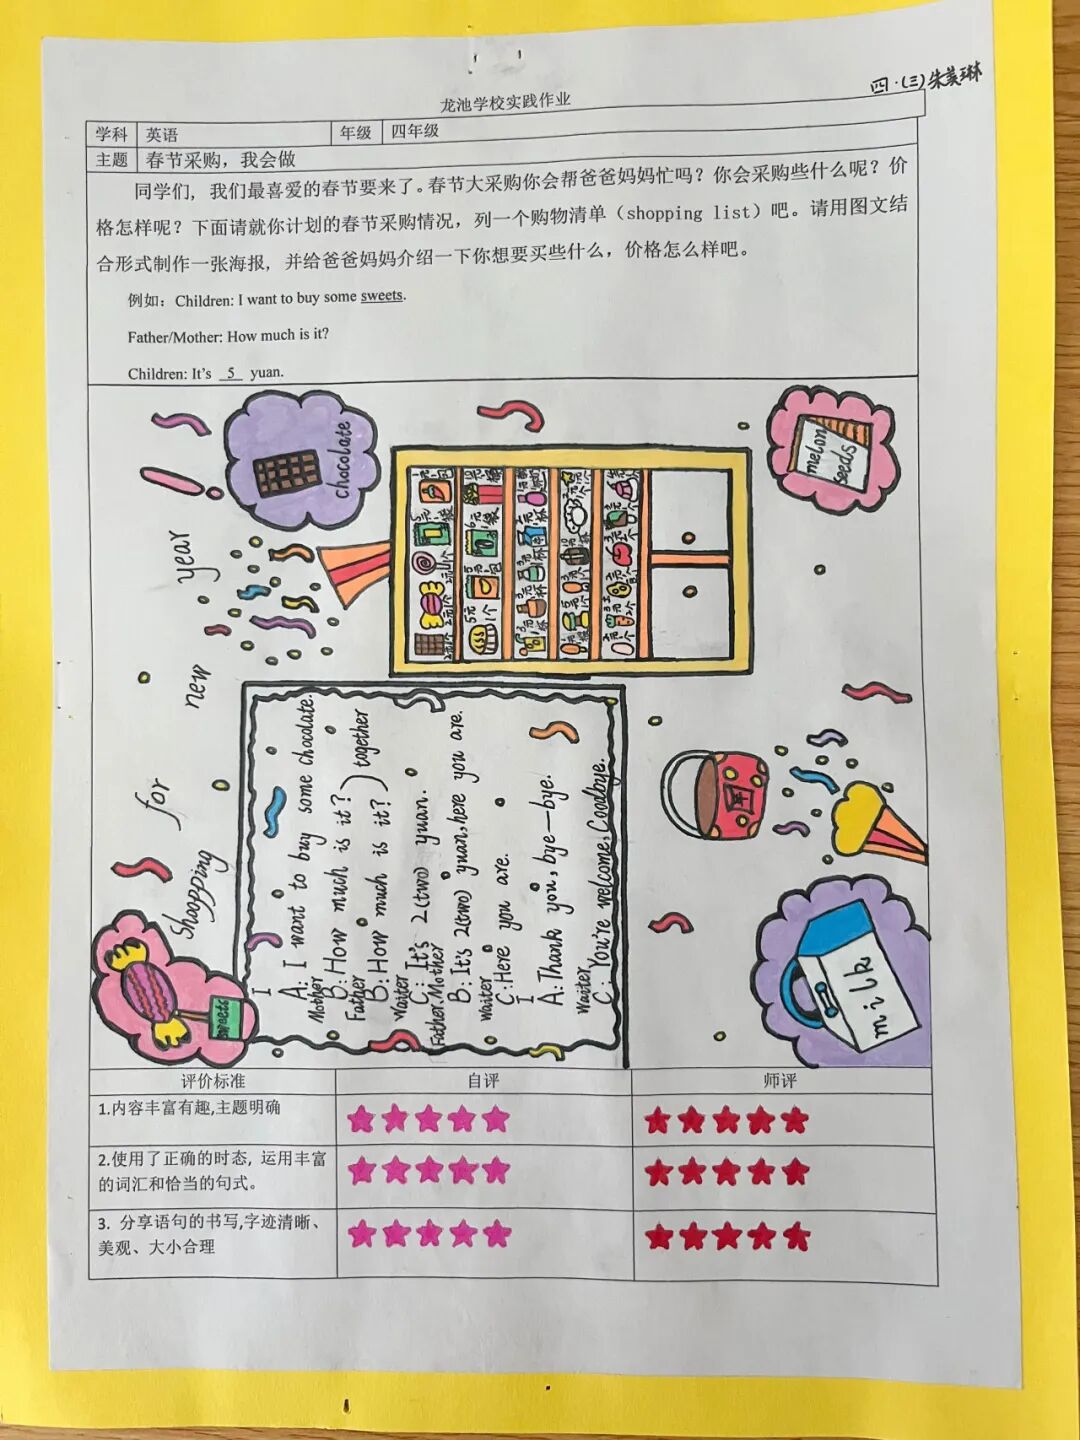 四·(三)朱美琳
龙池学校实践作业
学科 英语 年级 四年级
主题 春节采购，我会做
同学们，我们最喜爱的春节要来了。春节大采购你会帮爸爸妈妈忙吗？你会采购些什么呢？价
格怎样呢？下面请就你计划的春节采购情况，列一个购物清单（shopping list）吧。请用图文结
合形式制作一张海报，并给爸爸妈妈介绍一下你想要买些什么，价格怎么样吧。
例如：Children: I want to buy some sweets.
Father/Mother: How much is it?
Children: It's 5 yuan.
Shopping for new year!
chocolate
melon
seeds
sweets
milk
I
A: I want to buy some chocolate.
Mother
B: How much is it?
Father
B: How much is it?
together
Waiter
C: It's 2(two) yuan.
Father.Mother
B: It's 2(two) yuan, here you are.
Waiter
C: Here you are.
I
A: Thank you, bye—bye.
Waiter
C: You're welcome, Goodbye.
评价标准 自评 师评
1.内容丰富有趣,主题明确
2.使用了正确的时态, 运用丰富
的词汇和恰当的句式。
3. 分享语句的书写,字迹清晰、
美观、大小合理